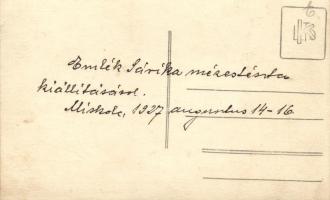 Emlék Sárika mézestészta
kiállításásról.
Miskolc, 1927 augusztus 14-16